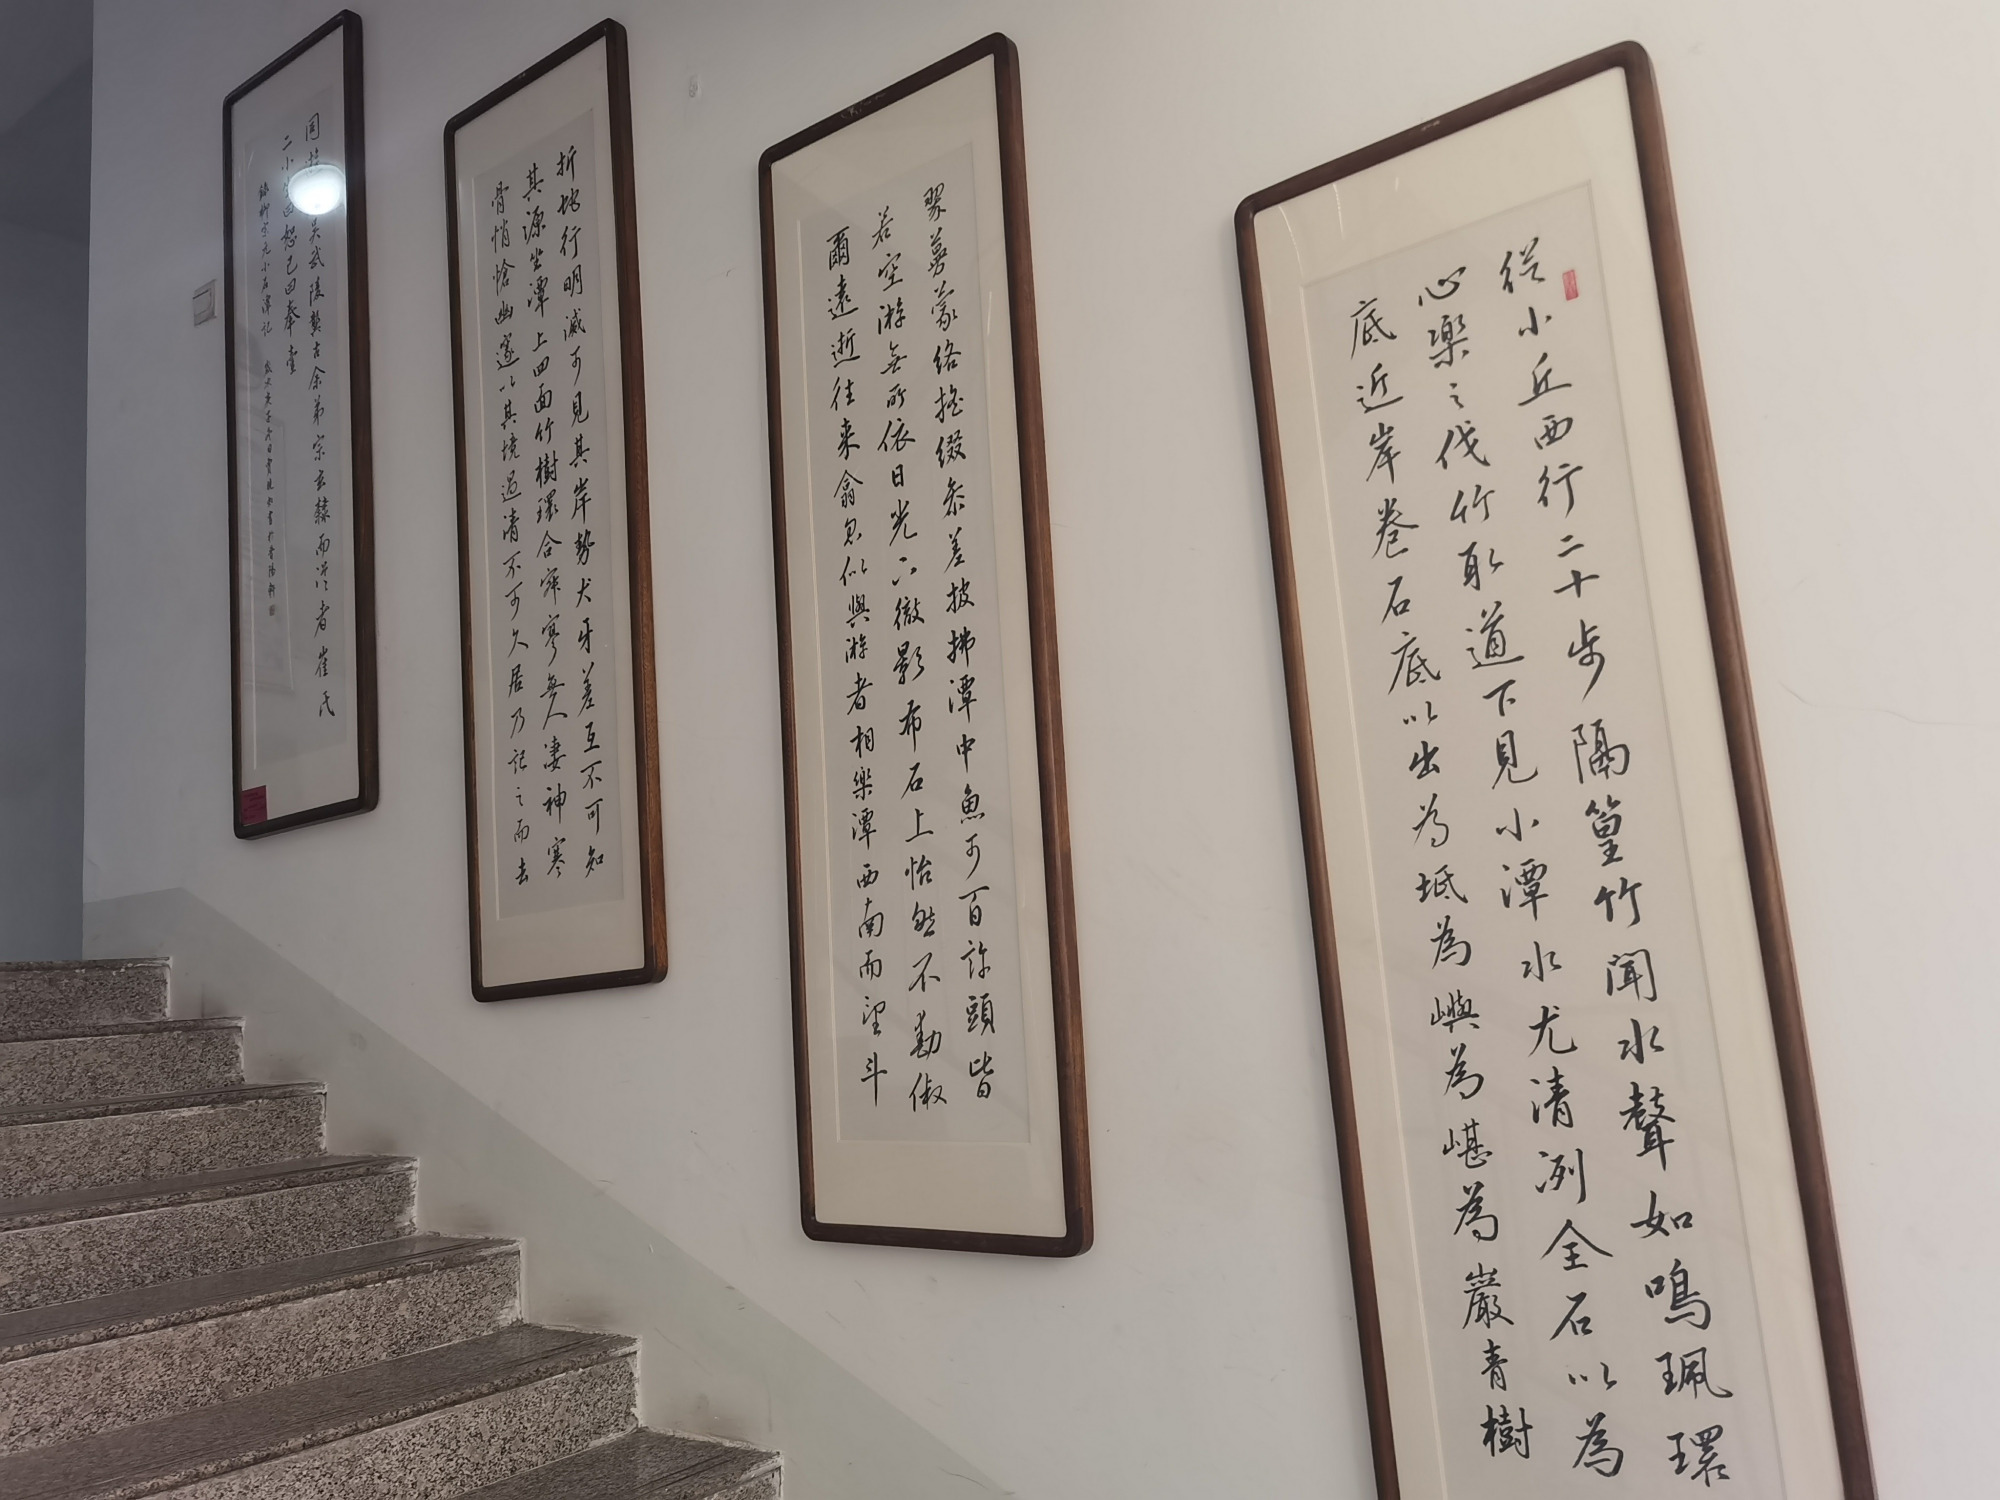 從小丘西行二十步隔篁竹聞水聲如鳴珮環
心樂之伐竹取道下見小潭水尤清洌全石以為
底近岸卷石底以出為坻為嶼為嵁為巖青樹
翠蔓蒙絡搖綴參差披拂潭中魚可百許頭皆
若空游無所依日光下徹影布石上怡然不動俶
爾遠逝往来翕忽似與游者相樂潭西南而望斗
折蛇行明滅可見其岸勢犬牙差互不可知
其源坐潭上四面竹樹環合寂寥無人凄神寒
骨悄愴幽邃以其境過清不可久居乃記之而去
同游 吴武陵龔古余弟宗玄隸而從者崔氏
二小生曰恕己曰奉壹
錄柳宗元小石潭記